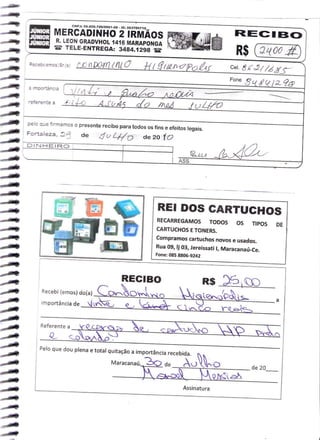 MERCADINHO 2 IRMÃOS
R. LEON GRADVHOL 1416 MARAPONGA
☎ TELE-ENTREGA: 3484.1298 ☎
RECIBO
R$ 2400 #
Recebi(emos) do (a) CONDOMINIO HIGIENOPOLIS
Cel.
Fone
a importância Vinte e quatro reais
referente a AGUAS do mes JULHO
pelo que firmamos o presente recibo para todos os fins e efeitos legais.
Fortaleza, de JULHO de 2010
DINHEIRO
ASS.
REI DOS CARTUCHOS
RECARREGAMOS TODOS OS TIPOS DE
CARTUCHOS E TONERS.
Compramos cartuchos novos e usados.
Rua 09, lj 03, Jereissati I, Maracanaú-Ce.
Fone: 085 8806-9242
RECIBO R$ 25,00
Recebi (emos) do(a) Condominio Higienopolis a
importância de Vinte e cinco reais
Referente a recarga de cartucho HP Preto
e colorido
Pelo que dou plena e total quitação a importância recebida.
Maracanaú, 30 de Julho de 20
Messias
Assinatura